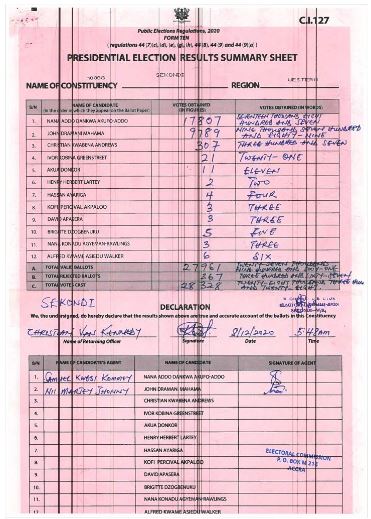 C.I.127
Public Elections Regulations, 2020
FORM TEN
( regulations 44 (7)(c), (d), (e), (g), (h), 44 (8), 44 (9) and 44 (9)(a) )
PRESIDENTIAL ELECTION RESULTS SUMMARY SHEET
SEKONDI WESTERN
NAME OF CONSTITUENCY REGION
S/N NAME OF CANDIDATE VOTES OBTAINED VOTES OBTAINED (IN WORDS)
(In the order in which they appear on the Ballot Paper) (IN FIGURES)
1. NANA ADDO DANKWA AKUFO-ADDO 17807 SEVENTEEN THOUSAND EIGHT HUNDRED AND SEVEN
2. JOHN DRAMANI MAHAMA 9789 NINE THOUSAND SEVEN HUNDRED AND EIGHTY-NINE
3. CHRISTIAN KWABENA ANDREWS 307 THREE HUNDRED AND SEVEN
4. IVOR KOBINA GREENSTREET 21 TWENTY-ONE
5. AKUA DONKOR 11 ELEVEN
6. HENRY HERBERT LARTEY 2 TWO
7. HASSAN AYARIGA 4 FOUR
8. KOFI PERCIVAL AKPALOO 3 THREE
9. DAVID APASERA 3 THREE
10. BRIGITTE DZOGBENUKU 5 FIVE
11. NANA KONADU AGYEMAN-RAWLINGS 3 THREE
12. ALFRED KWAME ASIEDU WALKER 6 SIX
A. TOTAL VALID BALLOTS 27961 TWENTY-SEVEN THOUSAND NINE HUNDRED AND SIXTY-ONE
B. TOTAL REJECTED BALLOTS 367 THREE HUNDRED AND SIXTY-SEVEN
C. TOTAL VOTES CAST 28328 TWENTY-EIGHT THOUSAND THREE HUN AND TWENTY-EIGHT
SEKONDI
DECLARATION
We, the undersigned, do hereby declare that the results shown above are true and accurate account of the ballots in this Constituency
CHRISTIAN VAN KENNEDY 8/12/2020 5:48am
Name of Returning Officer Signature Date Time
S/N NAME OF CANDIDATE'S AGENT NAME OF CANDIDATE SIGNATURE OF AGENT
1. SAMUEL KWESI NANA ADDO DANKWA AKUFO-ADDO
2. NII JOHN DRAMANI MAHAMA
3. CHRISTIAN KWABENA ANDREWS
4. IVOR KOBINA GREENSTREET
5. AKUA DONKOR
6. HENRY HERBERT LARTEY
7. HASSAN AYARIGA
8. KOFI PERCIVAL AKPALOO
9. DAVID APASERA
10. BRIGITTE DZOGBENUKU
11. NANA KONADU AGYEMAN-RAWLINGS
12 ALFRED KWAME ASIEDU WALKER
ELECTORAL COMMISSION
P. O. BOX M 214
ACCRA